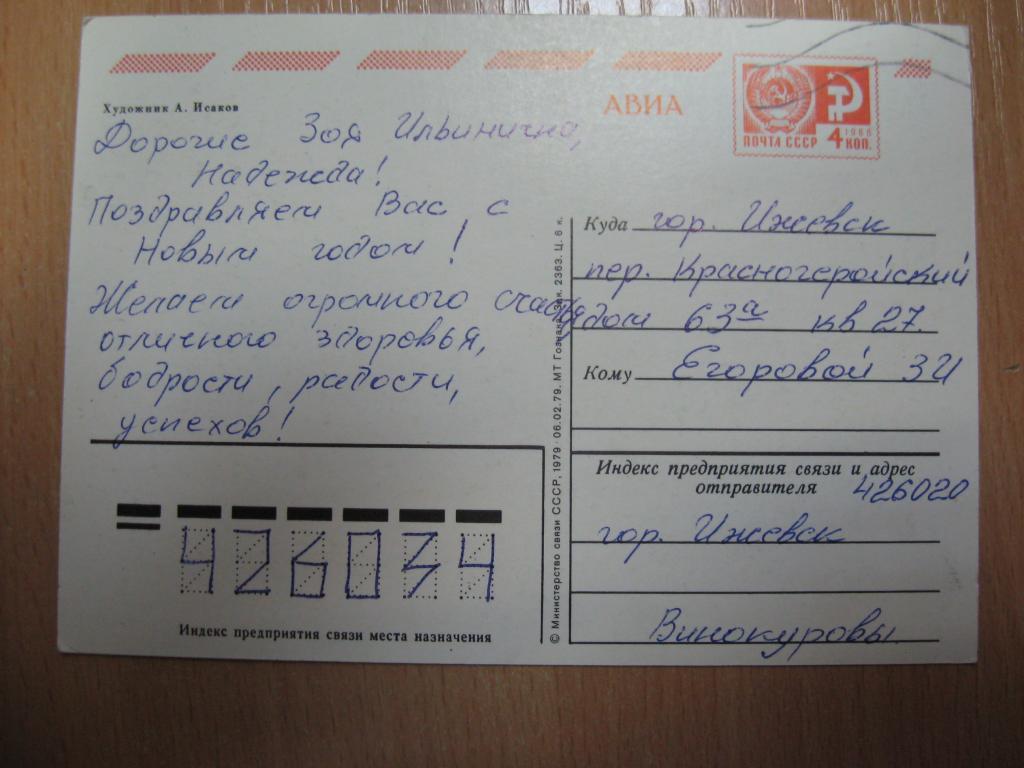 Художник А. Исаков
АВИА
ПОЧТА СССР 4 1966 КОП.
Дорогие Зоя Ильинична,
Надежда!
Поздравляем Вас с
Новым годом!
Желаем огромного счастья
отличного здоровья,
бодрости, радости,
успехов!
Куда гор. Ижевск
пер. Красногеройский
дом 63а кв 27
Кому Егоровой ЗИ
Индекс предприятия связи и адрес
отправителя 426020
гор. Ижевск
Винокуровы
426034
Индекс предприятия связи места назначения
© Министерство связи СССР, 1979 06.02.79. МТ Гознака. Зак. 2363. Ц. 6 к.